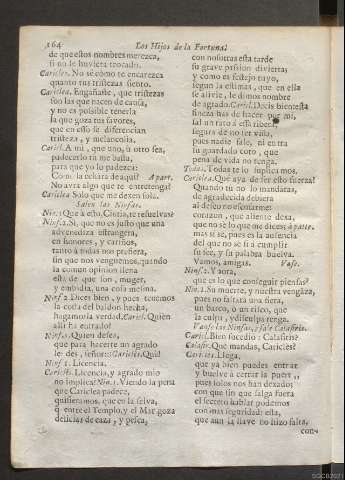 164 Los Hijos de la Fortuna!
de que estos nombres merezca,
si no le huviera trocado.
Caricles. No sè como te encarezca
quanto tus tristezas siento.
Cariclea. Engañaste, que tristezas
son las que nacen de causa,
y no es possible tenerla
la que goza tus favores,
que en esso se diferencian
tristeza, y melancolia.
Caricl. A mi, que uno, ù otro sea,
padecerlo tù me basta,
para que yo lo padezca:
Como la echarà de aqui? A part.
No avrà algo que te entretenga?
Cariclea Solo que me dexen sola.
Salen las Ninfas.
Nin. 1 Que à esto, Clotia, te resuelvas?
Ninf. 2. Si, que no es justo que una
advenediza estrangera,
en honores, y cariños,
tanto à todas nos prefiera,
sin que nos venguemos, quando
la comun opinion llena
està de que son, muger,
y embidia, una cosa mesma.
Ninf 2 Dices bien, y pues tenemos
la costa del baldon hecha,
hagamosla verdad. Caricl. Quièn
alli ha entrado?
Ninf. 1. Quien desea,
que para hacerte un agrado
le dès, señor:: Caricles. Què?
Ninf 1. Licencia.
Caricles. Licencia, y agrado mio
no implica? Nin. 1. Viendo la pena
que Cariclea padece,
quisieramos, que en la selva,
q̃ entre el Templo, y el Mar goza
delicias de caza, y pesca,
con nosotras esta tarde
su grave passion divierta;
y como es festejo tuyo,
segun la estimas, que en ella
se alivie, le dimos nombre
de agrado. Caricl. Decis bien: esta
fineza has de hacer por mi,
sal un rato à essa ribera,
segura de no ser vista,
pues nadie sale, ni entra
su guardado coto, que
pena de vida no tenga.
Todas. Todas te lo suplicamos.
Cariclea. Què aya de ser esto fuerza!
Quando tù no lo mandàras,
de agradecida debiera
al deseo no escusarme:
corazon, què aliento dexa,
que no sè lo que me dices; à parte.
mas si sè, pues es la ausencia
del que no sè si à cumplir
su fee, y su palabra buelva.
Vamos, amigas. Vase.
Ninf. 2. Y aora,
què es lo que conseguir piensas?
Nin. 1. Su muerte, y nuestra vengãza,
pues no faltarà una fiera,
un barco, ò un risco, que
la culpa, y disculpa tenga.
Vanse las Ninfas, y sale Calasiris.
Caricl. Bien sucedio: Calasiris?
Calas. Què mandas, Caricles?
Caricles. Llega,
que ya bien puedes entrar
y buelve à cerrar la puerta,
pues solos nos han dexado
con que sin que salga fuera
el secreto hablar podemos
con mas seguridad; ella,
que aun la llave no hizo falta,
con-